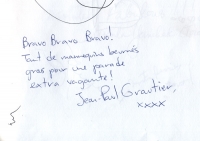 Bravo Bravo Bravo!
Tant de mannequins
gras pour une parade
extra vagante!
Jean-Paul Grautier,
xxxx